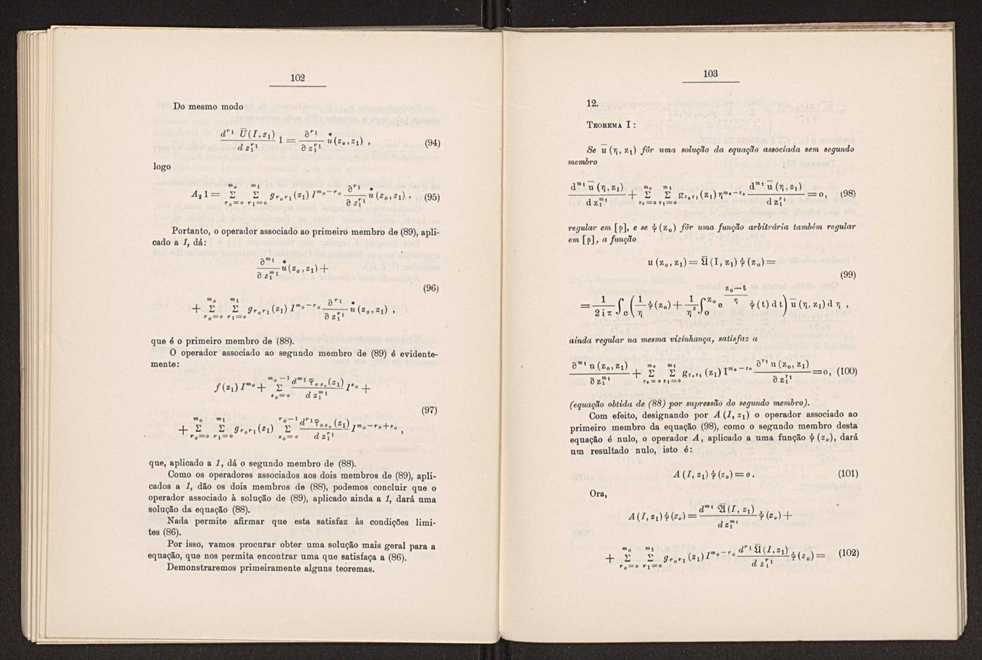 102
Do mesmo modo
d^{r_1} Ū(I,z_1) / d z_1^{r_1} 1 = ∂^{r_1} / ∂ z_1^{r_1} u^*(z_o,z_1) , (94)
logo
A_2 1 = Σ_{r_o=o}^{m_o} Σ_{r_1=o}^{m_1} g_{r_o r_1}(z_1) I^{m_o−r_o} ∂^{r_1} / ∂ z_1^{r_1} u^*(z_o,z_1) . (95)
Portanto, o operador associado ao primeiro membro de (89), apli-
cado a 1, dá:
∂^{m_1} / ∂ z_1^{m_1} u^*(z_o,z_1) +
(96)
+ Σ_{r_o=o}^{m_o} Σ_{r_1=o}^{m_1} g_{r_o r_1}(z_1) I^{m_o−r_o} ∂^{r_1} / ∂ z_1^{r_1} u^*(z_o,z_1) ,
que é o primeiro membro de (88).
O operador associado ao segundo membro de (89) é evidente-
mente:
f(z_1) I^{m_o} + Σ_{s_o=o}^{m_o−1} d^{m_1} φ_{o s_o}(z_1) / d z_1^{m_1} I^{s_o} +
(97)
+ Σ_{r_o=o}^{m_o} Σ_{r_1=o}^{m_1} g_{r_o r_1}(z_1) Σ_{s_o=o}^{r_o−1} d^{r_1} φ_{o s_o}(z_1) / d z_1^{r_1} I^{m_o−r_o+s_o} ,
que, aplicado a 1, dá o segundo membro de (88).
Como os operadores associados aos dois membros de (89), apli-
cados a 1, dão os dois membros de (88), podemos concluir que o
operador associado à solução de (89), aplicado ainda a 1, dará uma
solução da equação (88).
Nada permite afirmar que esta satisfaz às condições limi-
tes (86).
Por isso, vamos procurar obter uma solução mais geral para a
equação, que nos permita encontrar uma que satisfaça a (86).
Demonstraremos primeiramente alguns teoremas.
103
12.
TEOREMA I:
Se ū (η, z_1) fôr uma solução da equação associada sem segundo
membro
d^{m_1} ū (η, z_1) / d z_1^{m_1} + Σ_{r_o=o}^{m_o} Σ_{r_1=o}^{m_1} g_{r_o r_1}(z_1) η^{m_o−r_o} d^{m_1} ū (η, z_1) / d z_1^{r_1} = o, (98)
regular em [p], e se ψ (z_o) fôr uma função arbitrária também regular
em [p], a função
u (z_o, z_1) = Ū (I, z_1) ψ (z_o) =
(99)
= 1 / 2 i π ∫_c ( 1/η ψ(z_o) + 1/η^2 ∫_o^{z_o} e^{(z_o−t)/η} ψ (t) d t ) ū (η, z_1) d η ,
ainda regular na mesma vizinhança, satisfaz a
∂^{m_1} u (z_o, z_1) / ∂ z_1^{m_1} + Σ_{r_o=o}^{m_o} Σ_{r_1=o}^{m_1} g_{r_o r_1} (z_1) I^{m_o−r_o} ∂^{r_1} u (z_o, z_1) / ∂ z_1^{r_1} = o, (100)
(equação obtida de (88) por supressão do segundo membro).
Com efeito, designando por A (I, z_1) o operador associado ao
primeiro membro da equação (98), como o segundo membro desta
equação é nulo, o operador A, aplicado a uma função ψ (z_o), dará
um resultado nulo, isto é:
A (I, z_1) ψ (z_o) = o . (101)
Ora,
A (I, z_1) ψ (z_o) = d^{m_1} Ū (I, z_1) / d z_1^{m_1} ψ (z_o) +
+ Σ_{r_o=o}^{m_o} Σ_{r_1=o}^{m_1} g_{r_o r_1}(z_1) I^{m_o−r_o} d^{r_1} Ū (I, z_1) / d z_1^{r_1} ψ (z_o) = (102)